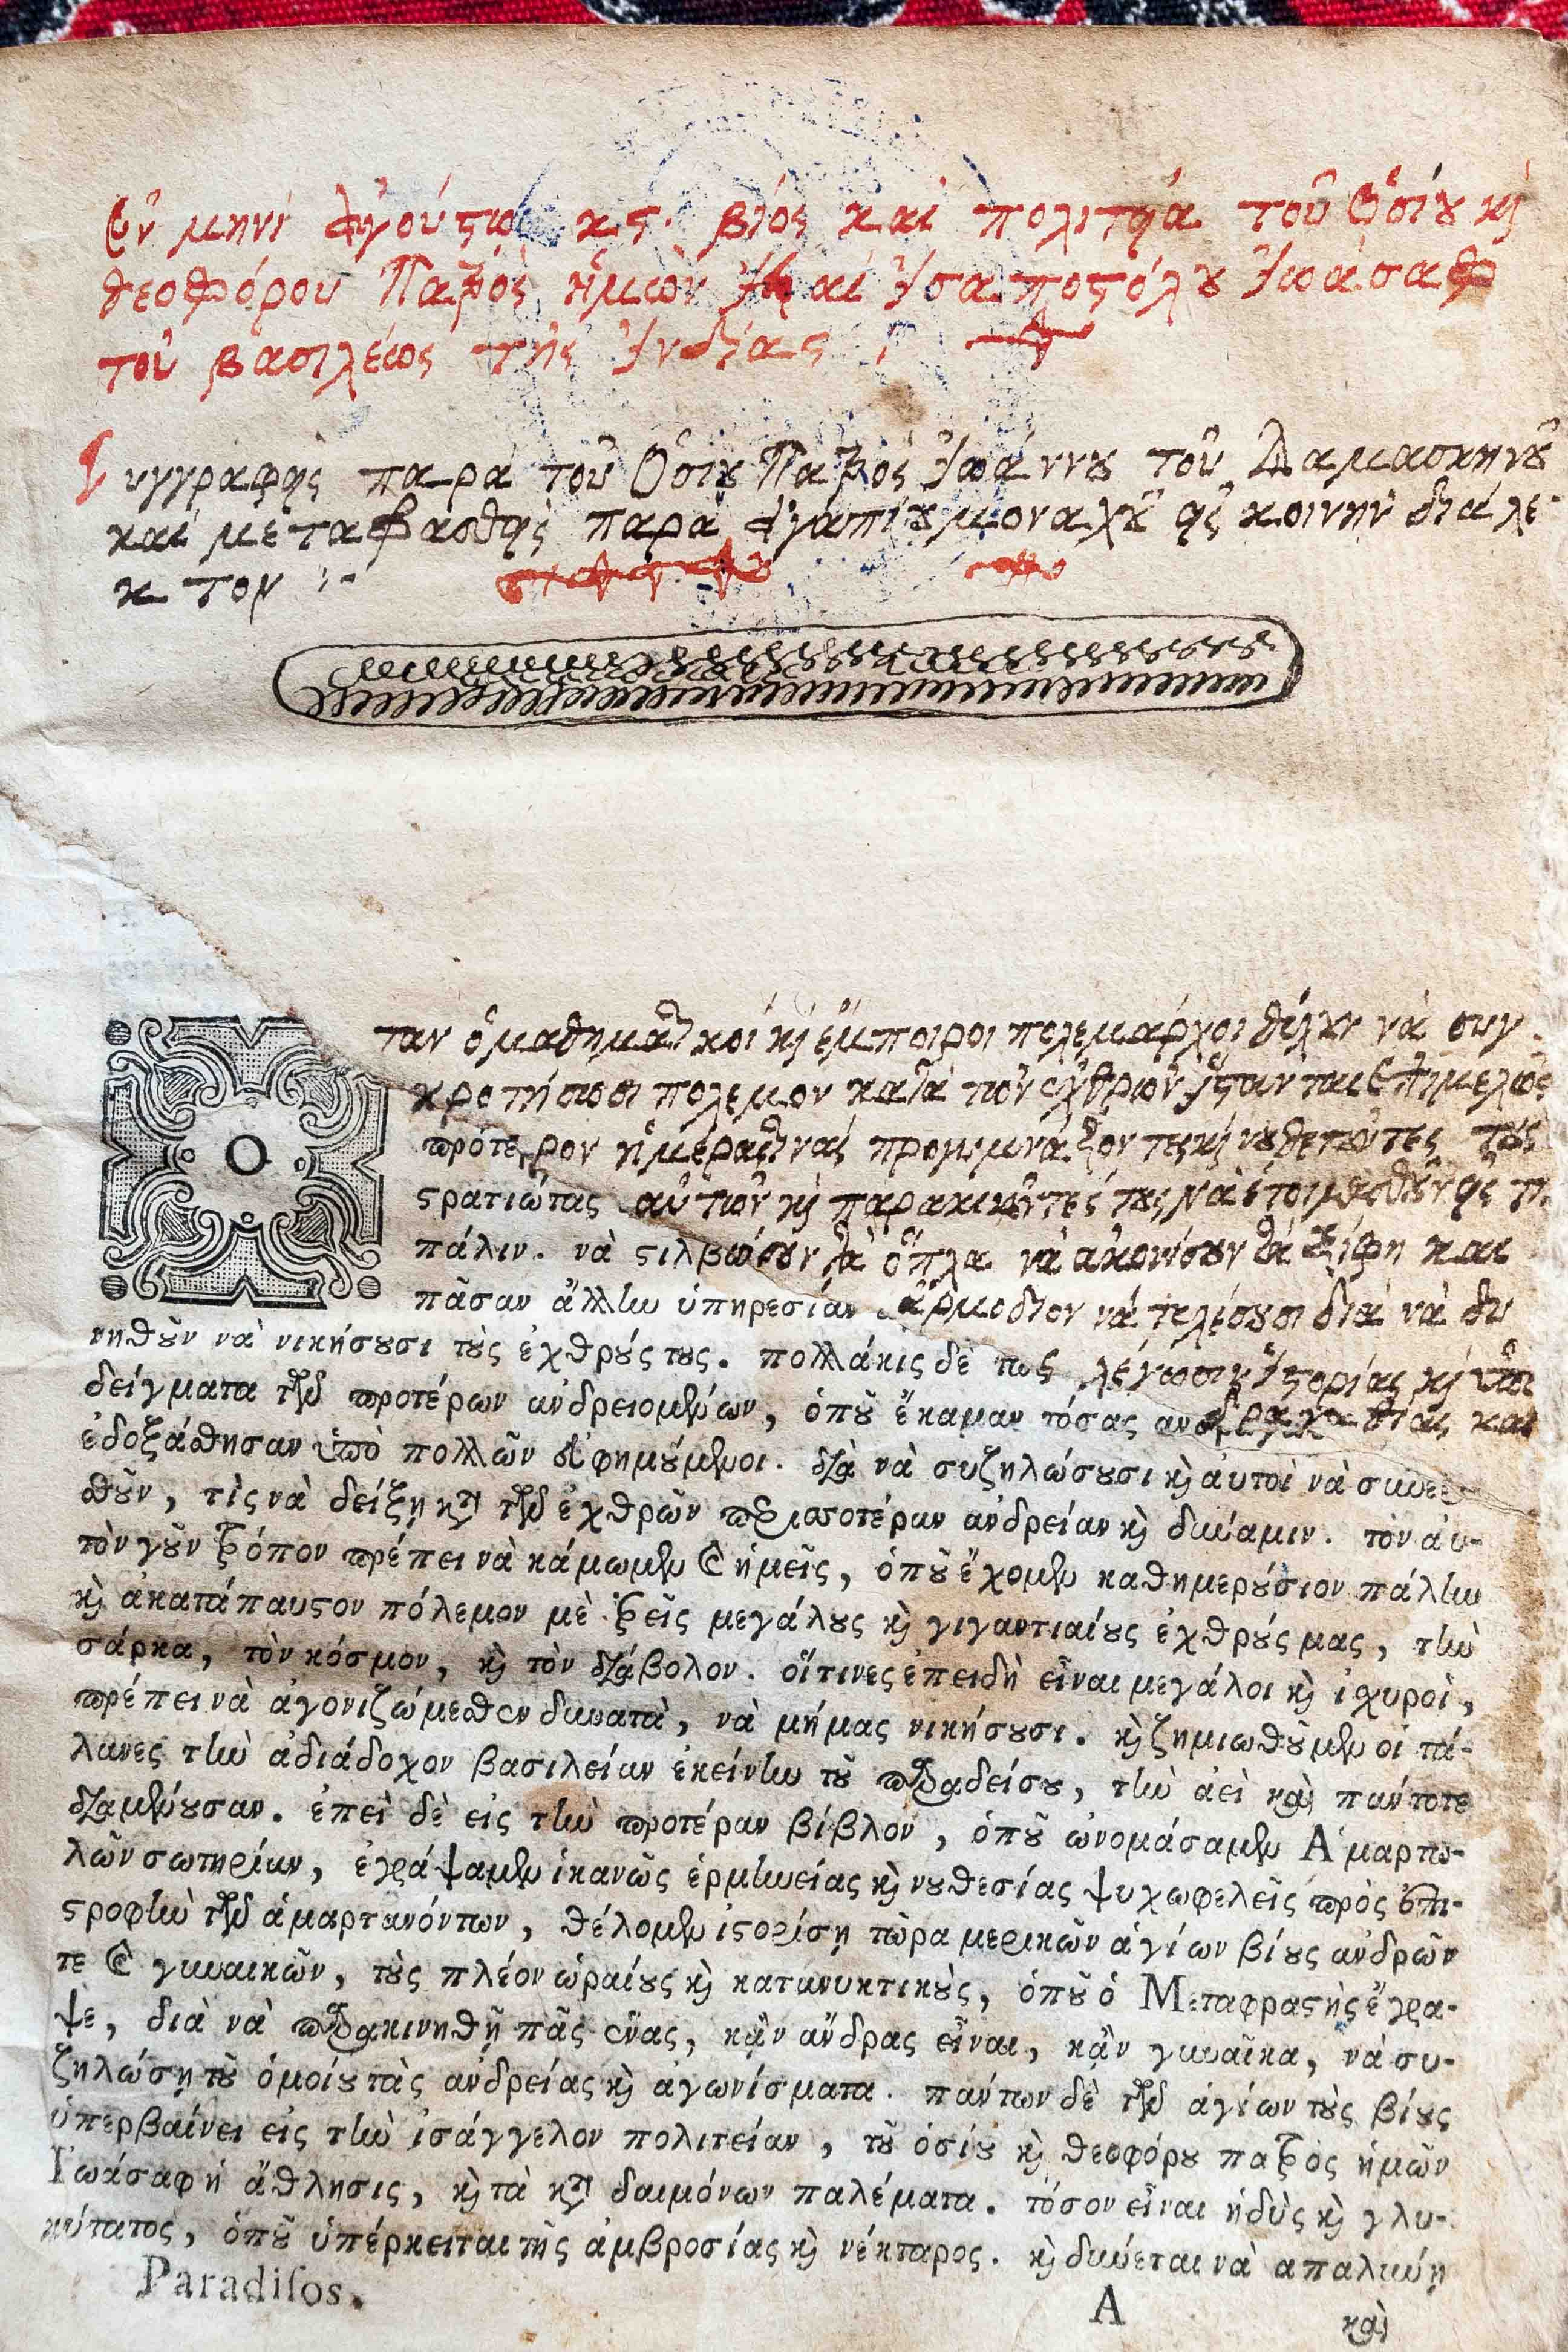 Ἐν μηνὶ Αὐγούστῳ κς. βίος καὶ πολιτεία τοῦ Ὁσίου κὶ
θεοφόρου Πατρὸς ἡμῶν καὶ Ἰσαποστόλου Ἰωάσαφ
τοῦ βασιλέως τῆς Ἰνδίας
Συγγραφεὶς παρὰ τοῦ Ὁσίου Πατρὸς Ἰωάννου τοῦ Δαμασκηνοῦ
καὶ μεταβασθεὶς παρὰ Ἀγαπίου μοναχοῦ εἰς κοινὴν διάλε-
κτον
Ο
ταν ὁ μαθηματικοὶ κὶ ἔμποιροι πολεμαρχοι θέλουν νὰ συγ-
κροτήσωσι πολεμον κατὰ τῶν ἐχθρῶν ἵστανται ἐπιμελῶς
πρότερον ἡμέρας τινὰς προγυμνάζοντες κὶ νουθετοῦντες τοὺς
στρατιώτας αὐτῶν κὶ παρακινοῦντές τους νὰ ἑτοιμασθοῦν εἰς τὴν
πάλιν. νὰ στιλβώσουν τὰ ὅπλα νὰ ἀκονίσουν τὰ ξίφη και
πᾶσαν ἄλλην ὑπηρεσίαν ἁρμοδιον νὰ τελέσουσι διὰ νὰ δυ
νηθοῦν νὰ νικήσουσι τοὺς ἐχθρούς τους. πολλάκις δὲ πως λέγωσιν ἱστορίας κὶ ὑπο
δείγματα τῶν προτέρων ἀνδρειομένων, ὁποῦ ἔκαμαν τόσας ανδραγαθίας και
ἐδοξάσθησαν ὑπὸ πολλῶν εὐφημούμενοι. διὰ νὰ συζηλώσουσι κὶ αὐτοὶ νὰ συνερι
σθοῦν, τὶς νὰ δείξῃ κατὰ τῶν ἐχθρῶν περισσοτέραν ἀνδρείαν κὶ δύναμιν. τὸν αὐ-
τὸν γοῦν τρόπον πρέπει νὰ κάμωμεν καὶ ἡμεῖς, ὁποῦ ἔχομεν καθημερούσιον πάλην
κὶ ἀκατάπαυστον πόλεμον μὲ τρεῖς μεγάλους κὶ γιγαντιαίους ἐχθρούς μας, τὴν
σάρκα, τὸν κόσμον, κὶ τὸν διάβολον. οἵτινες ἐπειδὴ εἶναι μεγάλοι κὶ ἰσχυροὶ,
πρέπει νὰ ἀγονιζώμεσθεν δυνατὰ, νὰ μή μας νικήσουσι. κὶ ζημιωθοῦμεν οἱ τά-
λανες τὴν ἀδιάδοχον βασιλείαν ἐκείνην τοῦ παραδείσου, τὴν ἀεὶ καὶ πάντοτε
διαμένουσαν. ἐπεὶ δὲ εἰς τὴν προτέραν βίβλον, ὁποῦ ὠνομάσαμεν Ἁμαρτω-
λῶν σωτηρίαν, ἐγράψαμεν ἱκανῶς ἑρμηνείας κὶ νουθεσίας ψυχωφελεῖς πρὸς ἐπι-
στροφὴν τῶν ἁμαρτανόντων, θέλομεν ἱστορίσῃ τῶρα μερικῶν ἁγίων βίους ἀνδρῶν
τε καὶ γυναικῶν, τοὺς πλέον ὡραίους κὶ κατανυκτικοὺς, ὁποῦ ὁ Μεταφραστὴς ἔγρα-
ψε, διὰ νὰ παρακινηθῇ πᾶς ἕνας, κἂν ἄνδρας εἶναι, κἂν γυναῖκα, νὰ συ-
ζηλώσῃ τοῦ ὁμοίου τὰς ἀνδρείας κὶ ἀγωνίσματα. πάντων δὲ τῶν ἁγίων τοὺς βίους
ὑπερβαίνει εἰς τὴν ἰσάγγελον πολιτείαν, τοῦ ὁσίου κὶ θεοφόρου πατρὸς ἡμῶν
Ἰωάσαφ ἡ ἄθλησις, κὶ τὰ κατὰ δαιμόνων παλέματα. τόσον εἶναι ἡδὺς κὶ γλυ-
κύτατος, ὁποῦ ὑπέρκειται τῆς ἀμβροσίας κὶ νέκταρος. κὶ δύνεται νὰ ἀπαλύνῃ
Paradiſos.
A
καὶ